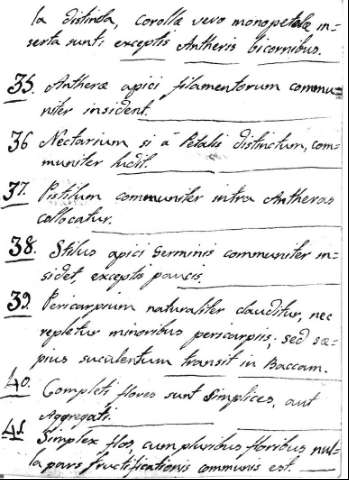 la distincta, corollæ vero monopetalæ in=
serta sunt: exceptis Antheris bicornibus.
35. Antheræ apici filamentorum commu=
niter insident.
36 Nectarium si â Petalis distinctum, com=
muniter ludit.
37. Pistilum communiter intra Antheras
collocatur.
38. Stilus apici Germinis communiter in=
sidet, exceptis paucis.
39. Pericarpium naturaliter clauditur, nec
repletur minoribus pericarpiis; sed sæ=
pius suculentum transit in Baccam.
40. Completi flores sunt Simplices, aut
Aggregati.
41. Simplex flos, cum pluribus floribus nul=
la pars fructificationis communis est.